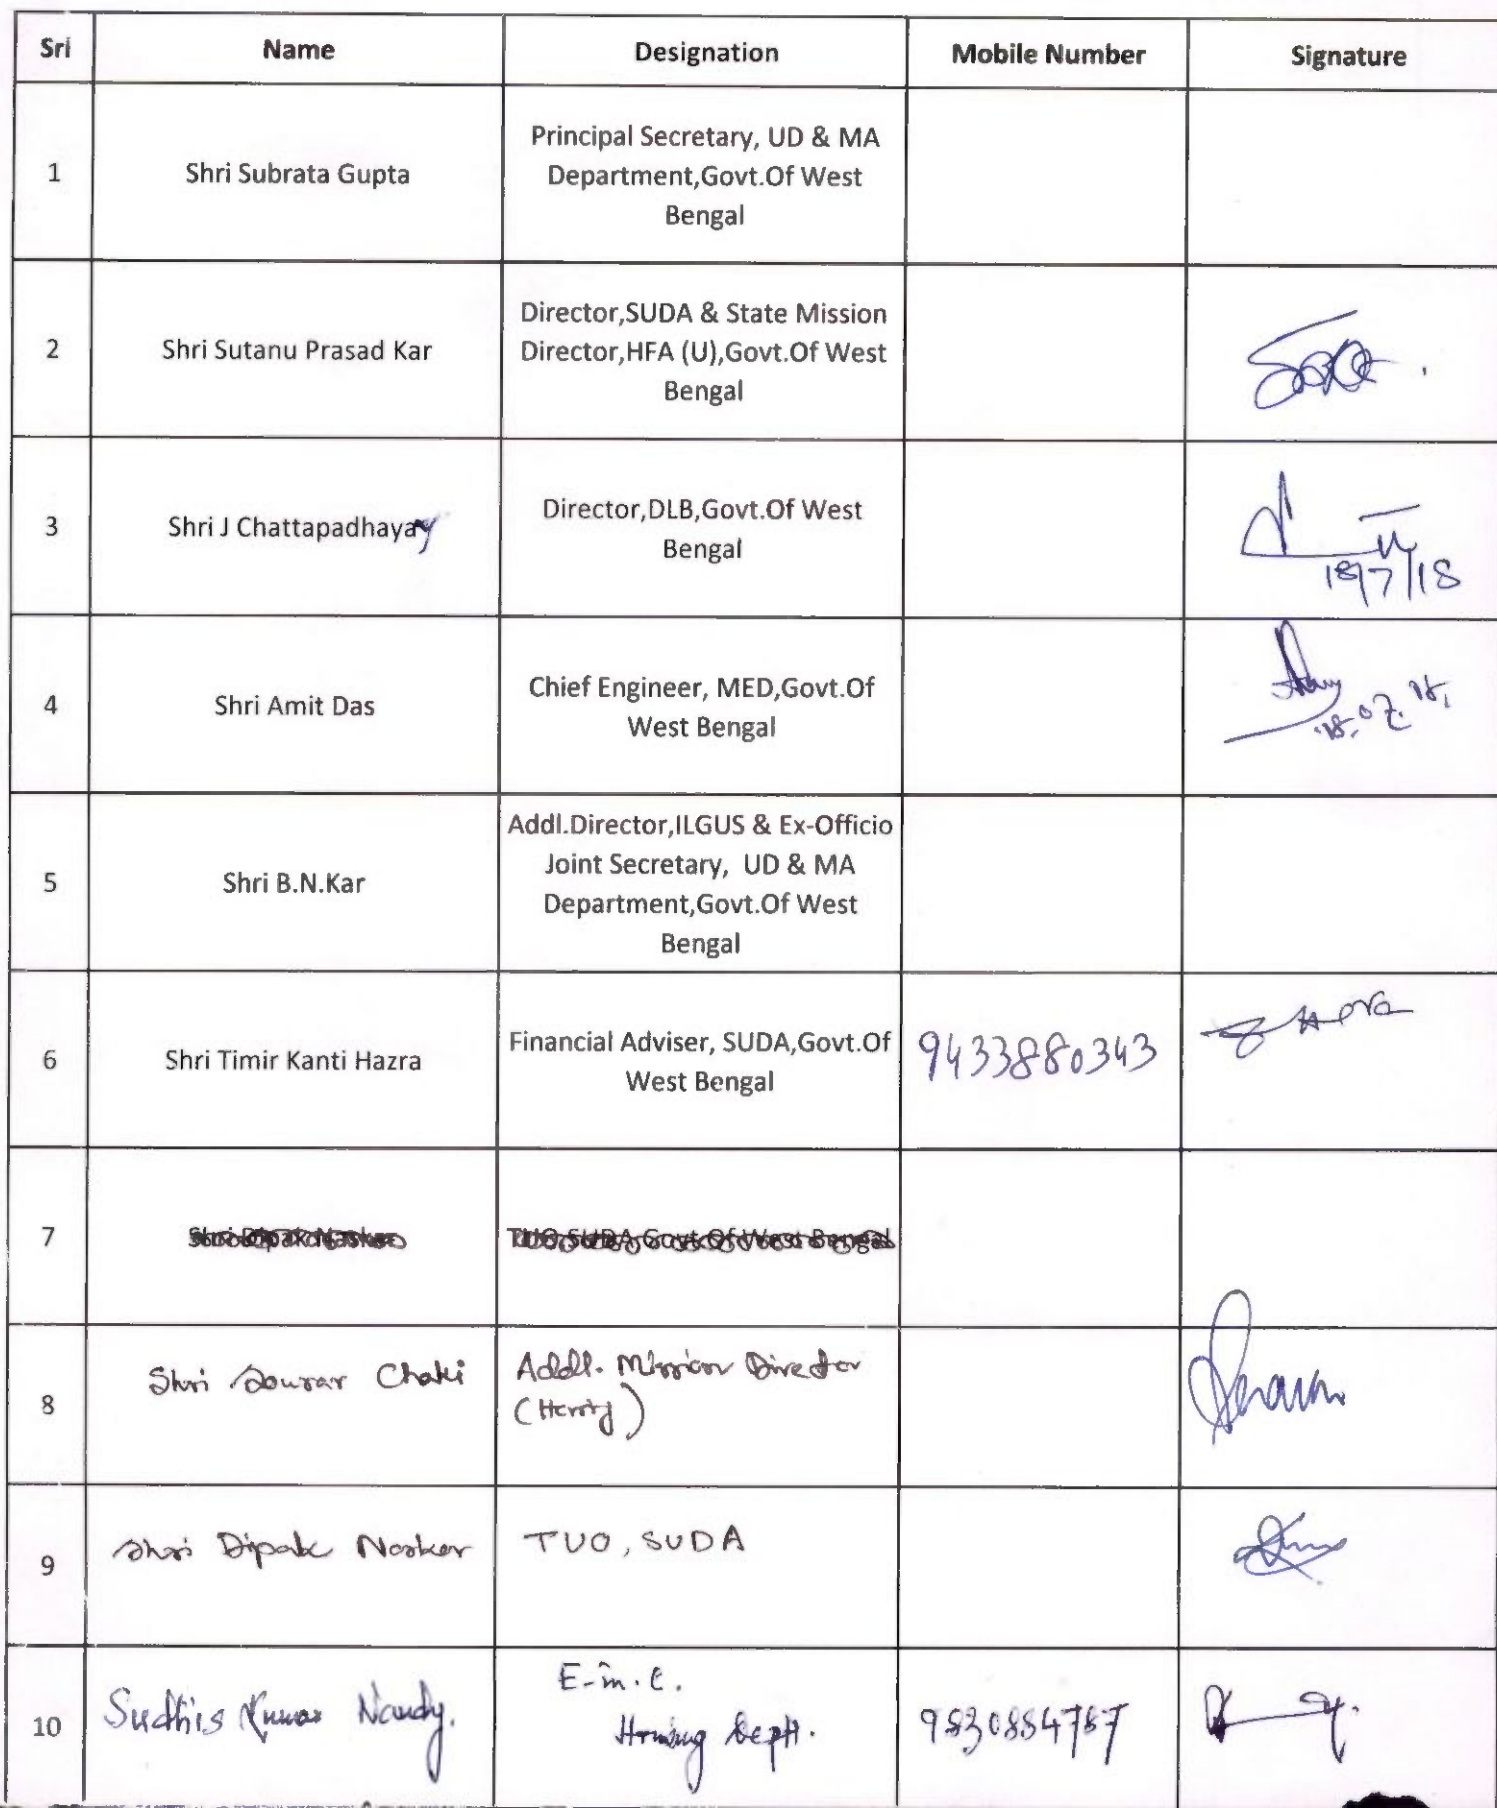 Sri Name Designation Mobile Number Signature
1 Shri Subrata Gupta
Principal Secretary, UD & MA
Department,Govt.Of West
Bengal
2 Shri Sutanu Prasad Kar
Director,SUDA & State Mission
Director,HFA (U),Govt.Of West
Bengal
3 Shri J Chattapadhayay
Director,DLB,Govt.Of West
Bengal
18/7/18
4 Shri Amit Das
Chief Engineer, MED,Govt.Of
West Bengal
18.07.18.
5 Shri B.N.Kar
Addl.Director,ILGUS & Ex-Officio
Joint Secretary, UD & MA
Department,Govt.Of West
Bengal
6 Shri Timir Kanti Hazra
Financial Adviser, SUDA,Govt.Of
West Bengal
9433880343
7 Shri Dipak Naskar TUO,SUDA,Govt.Of West Bengal
8 Shri Sourav Chaki
Addl. Mission Director
9 Shri Dipak Naskar TUO, SUDA
10 Sudhis Kumar Nandy.
E-in-C.
Housing Deptt.
9830884787